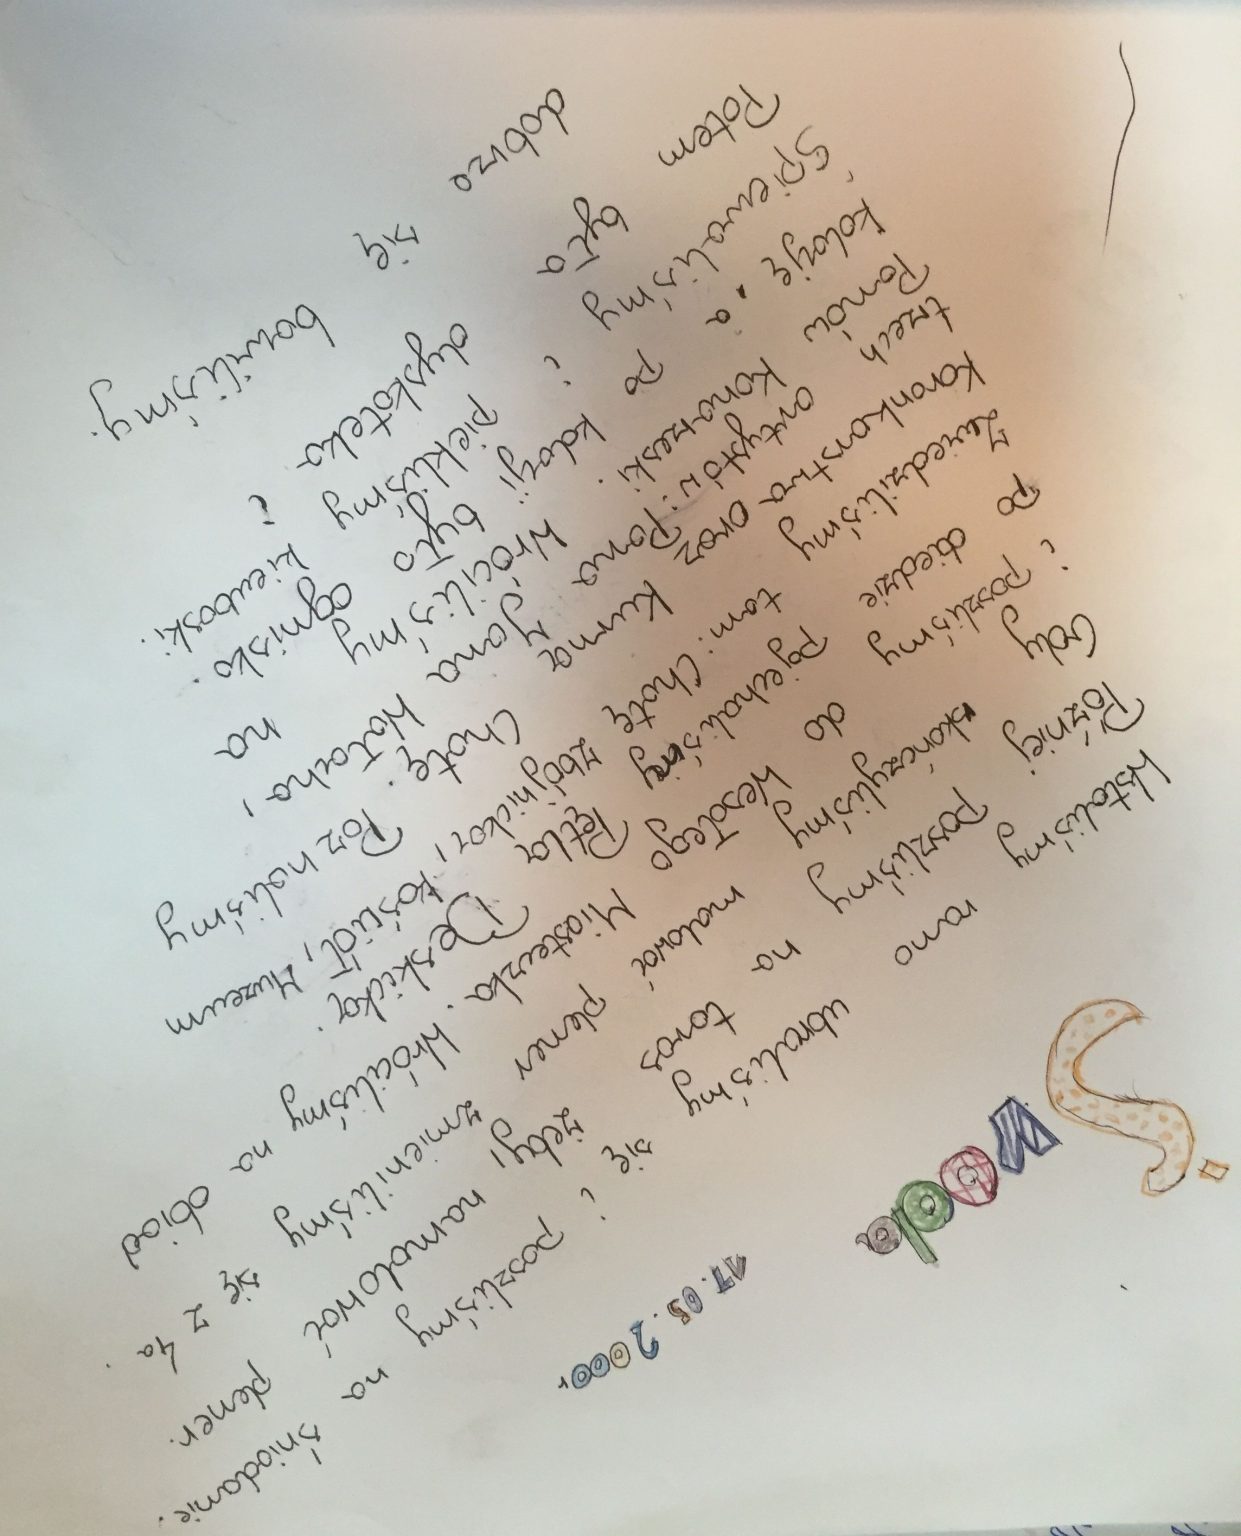 Środa 17.05.2000r
Wstaliśmy rano ubraliśmy się i poszliśmy na śniadanie.
Później poszliśmy na taras żeby namalować plener.
Gdy skończyliśmy malować plener zmieniliśmy się z 4a.
i poszliśmy do Wesołego Miasteczka. Wróciliśmy na obiad
po obiedzie pojechaliśmy Pętlą Beskidzką.
Zwiedziliśmy tam: Chatę zbójnicką, kościół, Muzeum
Koronkarstwa oraz Kurną Chatę. Poznaliśmy
trzech artystów: Pana Jana Wałacha,
Panów Konarzeski. Wróciliśmy na
kolację, a po kolacji było ognisko.
śpiewaliśmy i piekliśmy kiewbaski.
Potem była dyskoteka i
dobrze się bawiliśmy.